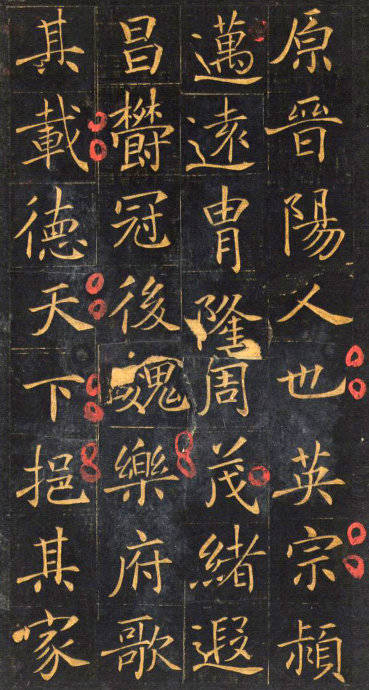 原晉陽人也英宗穎
邁遠胄隆周茂緒遐
昌欝冠後魏樂府歌
其載德天下挹其家